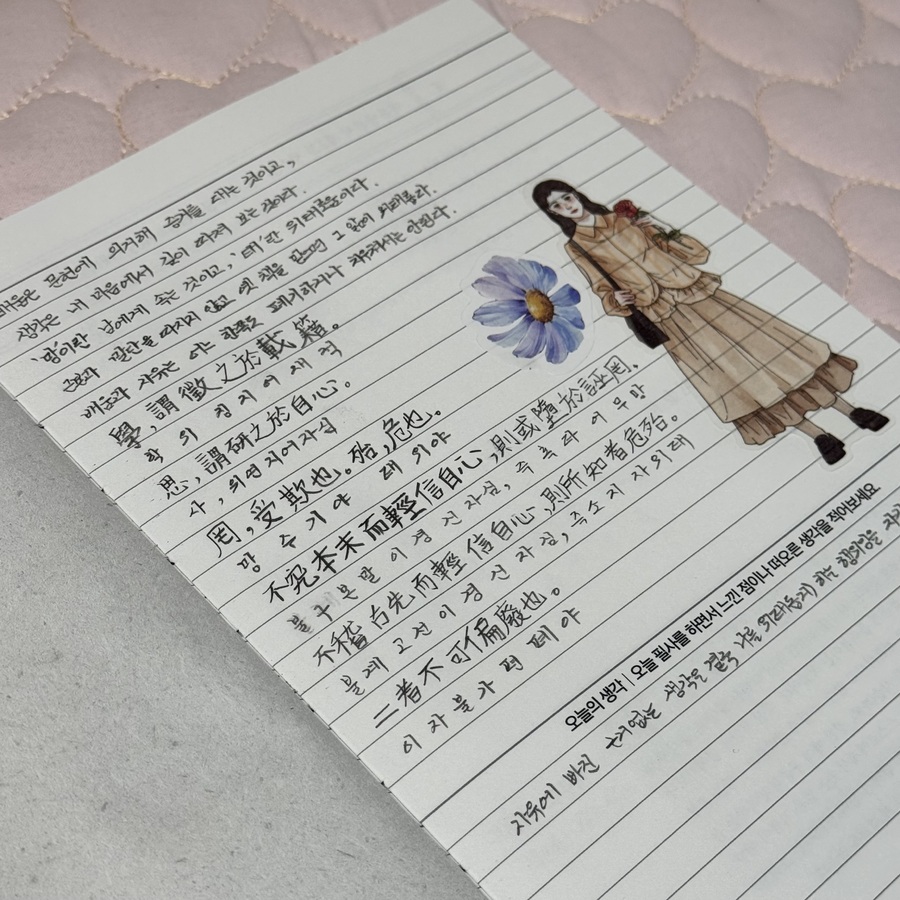 배움은 문헌에 의지해 증거를 대는 것이고,
생각은 내 마음에서 깊이 따져 보는 것이다.
'망'이란 남에게 속는 것이고, '태'란 위태로움이다.
근본과 말단을 따지지 않고 옛 책을 믿으면 그 앎이 위태롭다.
배움과 사유는 어느 한쪽도 폐기하거나 치우쳐서는 안된다.
學, 謂徵之於載籍。
학 위 징 지 어 재 적
思, 謂研之於自心。
사, 위연지어자심
罔, 受欺也。殆, 危也。
망 수 기 야 태 위야
不究本末而輕信自心, 則或墮於誣罔.
불 구 본 말 이 경 신 자심, 즉 혹 타 어 우 망
不稽古先而輕信自心, 則所知者危殆.
불 계 고 선 이 경 신 자 심, 즉소 지 자 위태
二者不可偏廢也。
이 자 불 가 편 폐 야
오늘의 생각 | 오늘 필사를 하면서 느낀 점이나 떠오른 생각을 적어보세요
지유에 빠진 근거없는 생각은 결국 나를 위태롭게 하는 행위임을